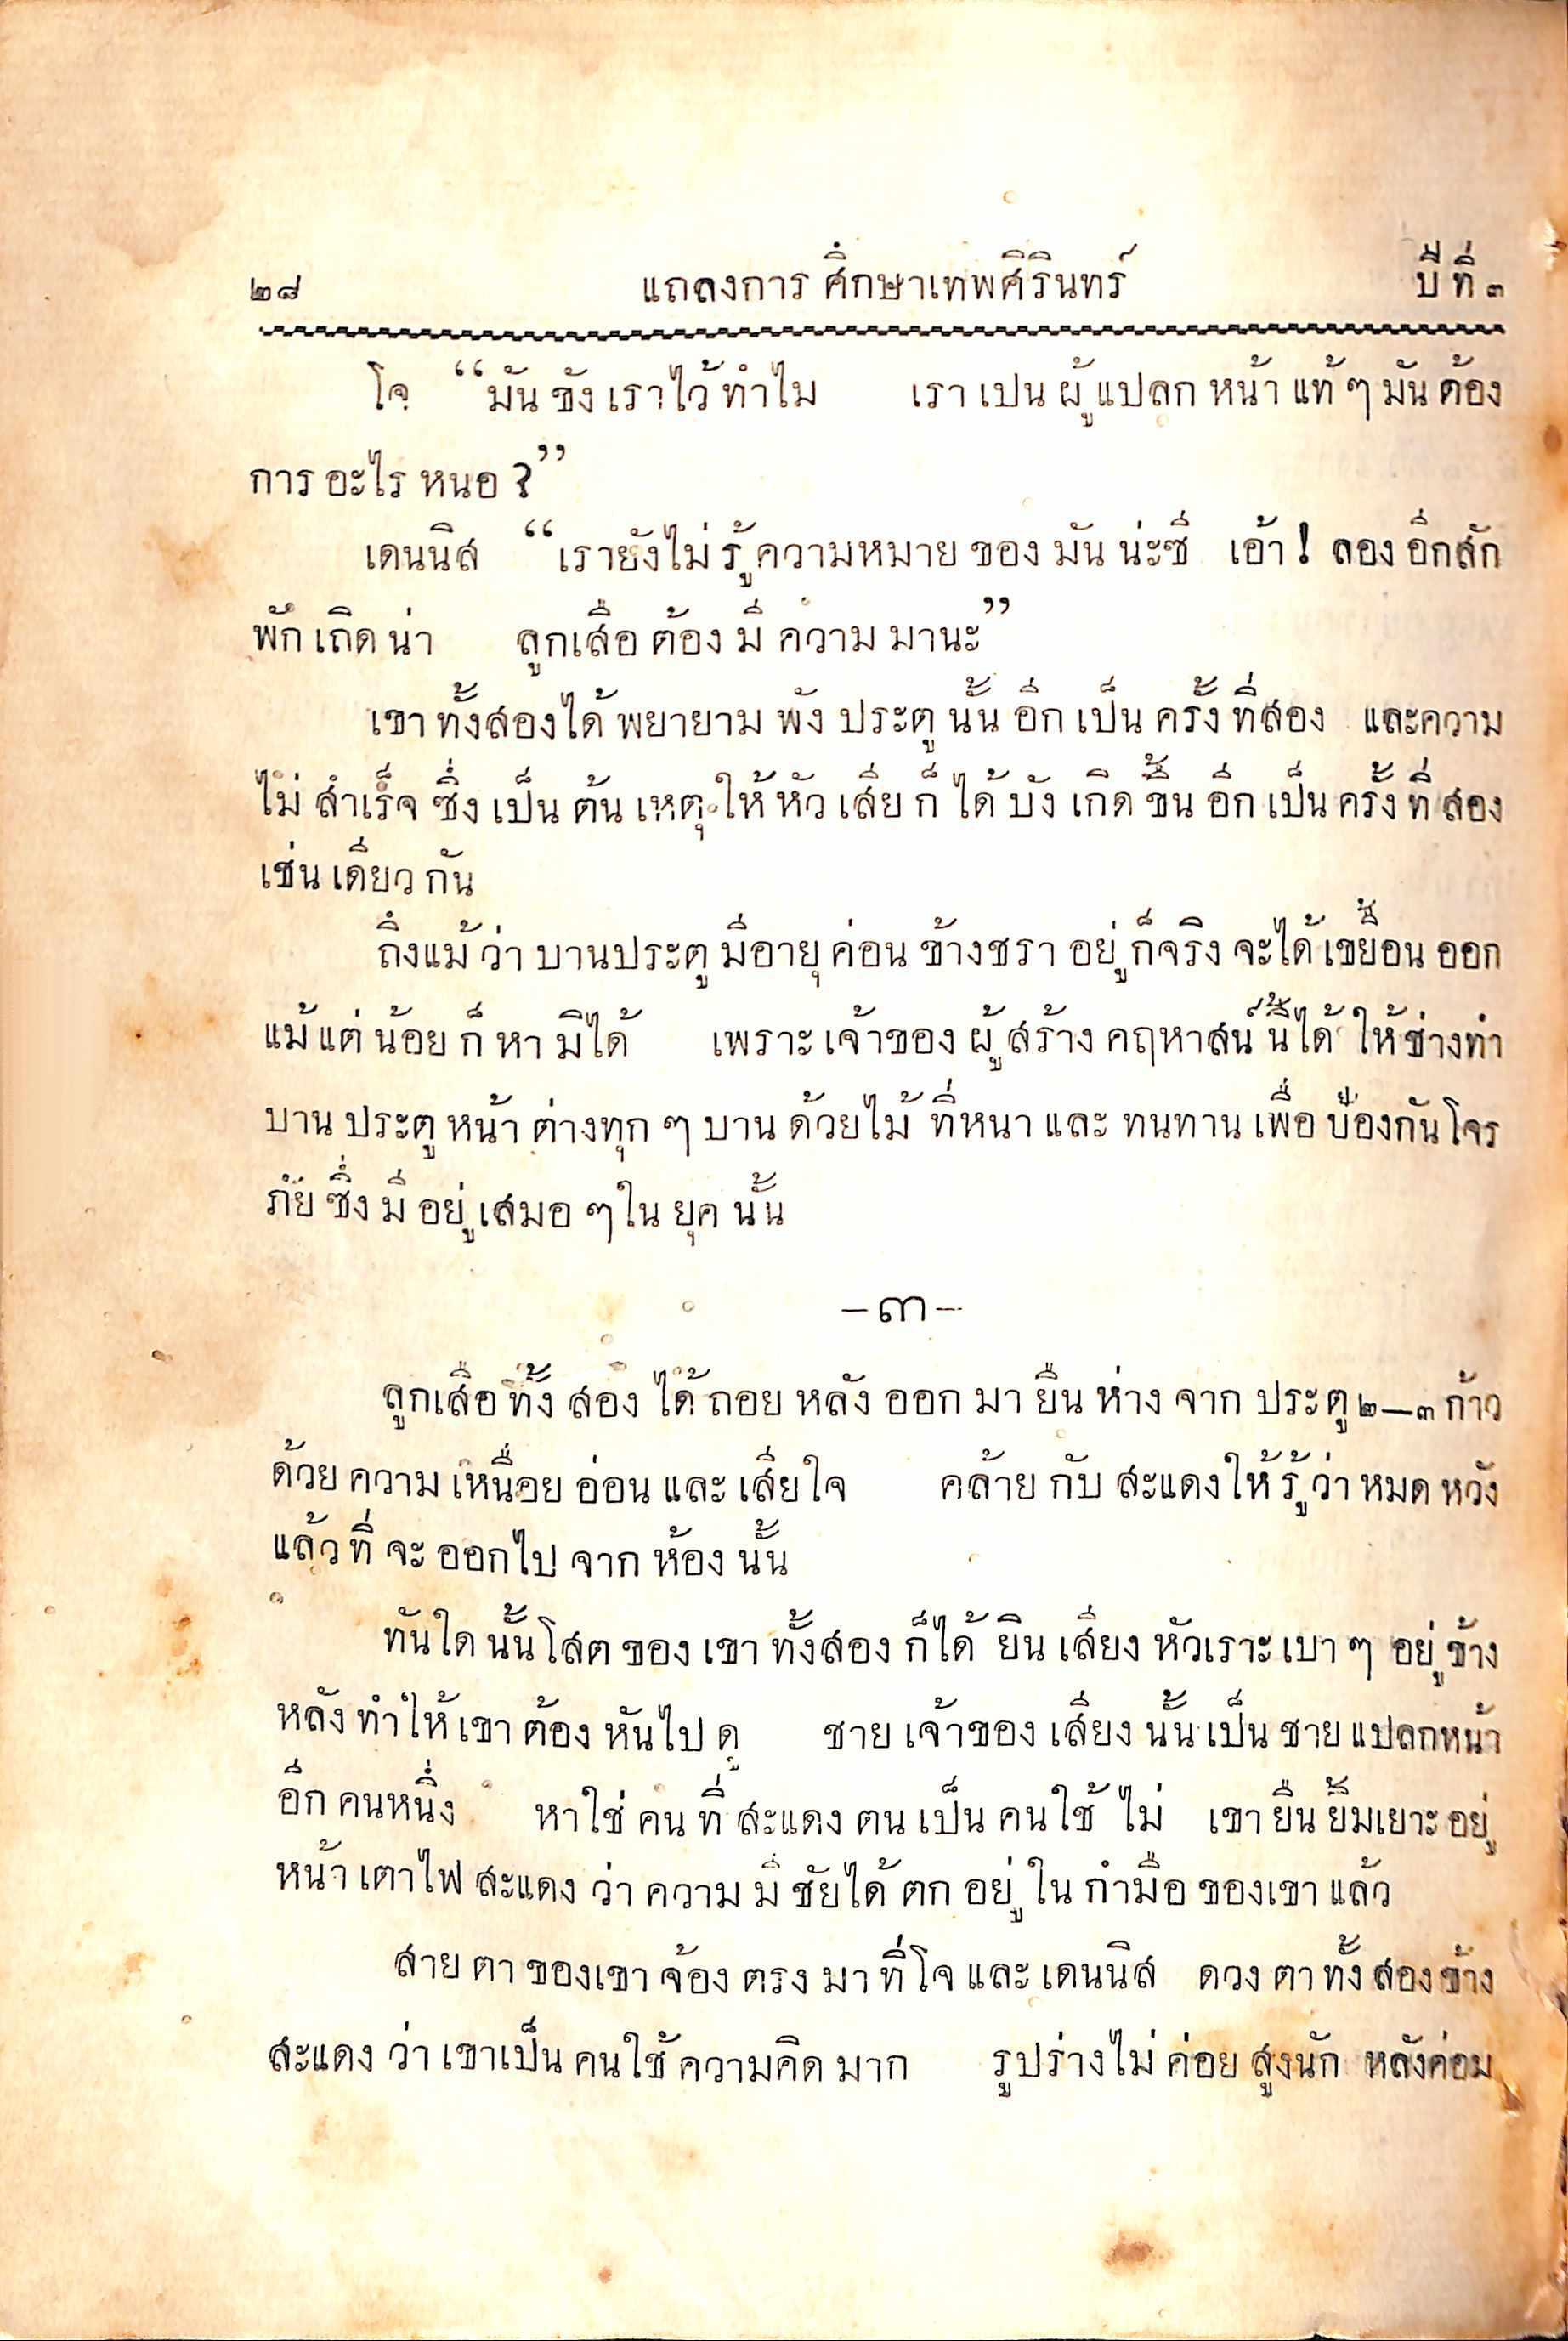 ๒๘ แถลงการศึกษาเทพศิรินทร์ ปีที่ ๓
โจ “มันขังเราไว้ทำไม เราเปนผู้แปลกหน้าแท้ๆ มันต้อง
การอะไรหนอ ?”
เดนนิส “เรายังไม่รู้ความหมายของมันน่ะซี เอ้า! ลองอีกสัก
พักเถิดน่า ลูกเสือต้องมีความมานะ”
เขาทั้งสองได้พยายามพังประตูนั้นอีกเป็นครั้งที่สอง และความ
ไม่สำเร็จซึ่งเป็นต้นเหตุให้หัวเสียก็ได้บังเกิดขึ้นอีกเป็นครั้งที่สอง
เช่นเดียวกัน
ถึงแม้ว่าบานประตูมีอายุค่อนข้างชราอยู่ก็จริงจะได้เขยื้อนออก
แม้แต่น้อยก็หามิได้ เพราะเจ้าของผู้สร้างคฤหาสน์นี้ได้ให้ช่างทำ
บานประตูหน้าต่างทุกๆบานด้วยไม้ที่หนาและทนทานเพื่อป้องกันโจร
ภัยซึ่งมีอยู่เสมอๆในยุคนั้น
—๓—
ลูกเสือทั้งสองได้ถอยหลังออกมายืนห่างจากประตู ๒—๓ ก้าว
ด้วยความเหนื่อยอ่อนและเสียใจ คล้ายกับสะแดงให้รู้ว่าหมดหวัง
แล้วที่จะออกไปจากห้องนั้น
ทันใดนั้นโสตของเขาทั้งสองก็ได้ยินเสียงหัวเราะเบาๆ อยู่ข้าง
หลังทำให้เขาต้องหันไปดู ชายเจ้าของเสียงนั้นเป็นชายแปลกหน้า
อีกคนหนึ่ง หาใช่คนที่สะแดงตนเป็นคนใช้ไม่ เขายืนยิ้มเยาะอยู่
หน้าเตาไฟสะแดงว่าความมีชัยได้ตกอยู่ในกำมือของเขาแล้ว
สายตาของเขาจ้องตรงมาที่โจและเดนนิส ดวงตาทั้งสองข้าง
สะแดงว่าเขาเป็นคนใช้ความคิดมาก รูปร่างไม่ค่อยสูงนัก หลังค่อม